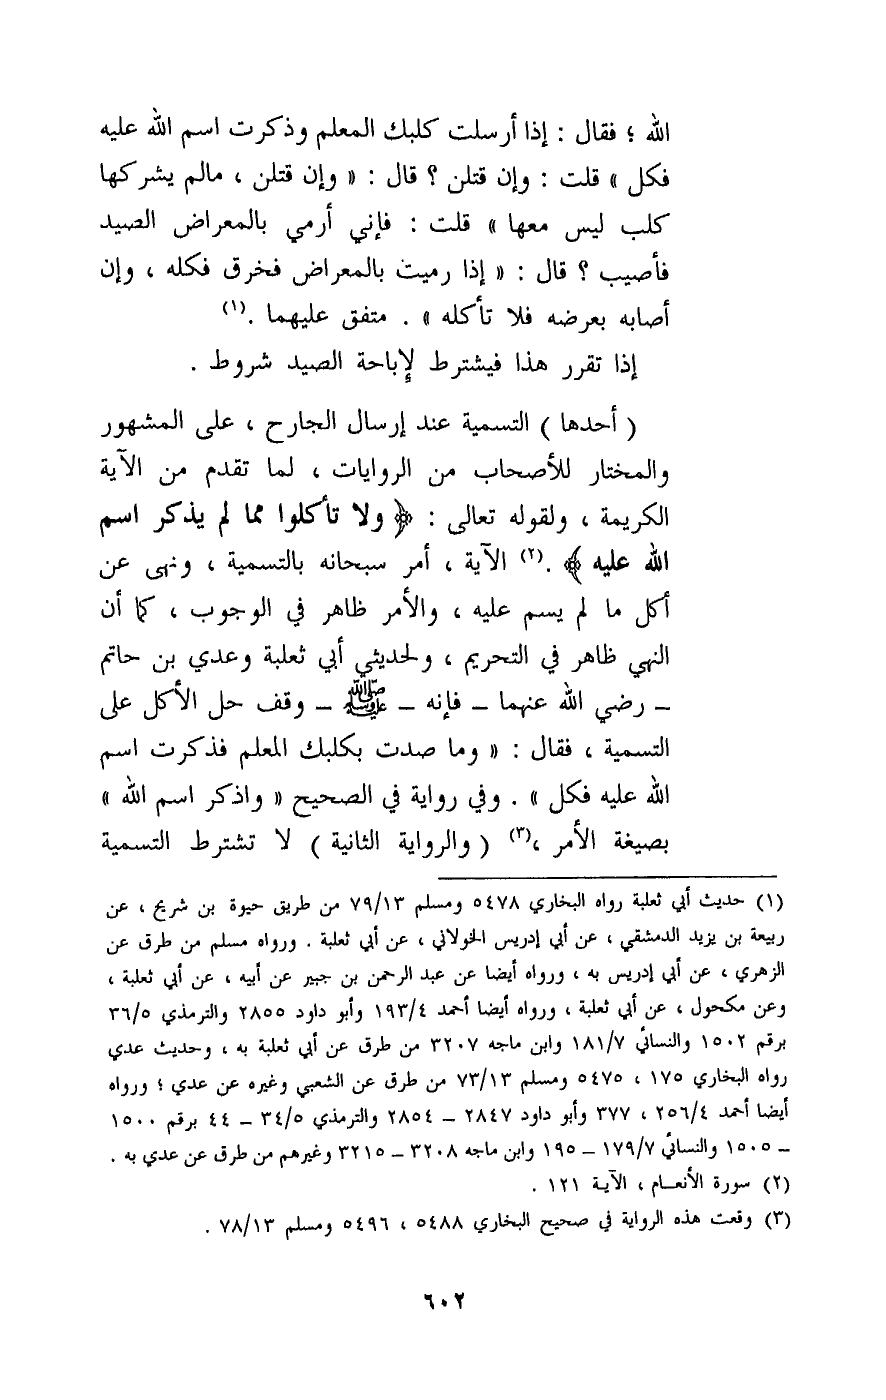 الله ؛ فقال : إذا أرسلت كلبك المعلم وذكرت اسم الله عليه
فكل » قلت : وإن قتلن ؟ قال : « وإن قتلن ، مالم يشركها
كلب ليس معها » قلت : فإني أرمي بالمعراض الصيد
فأصيب ؟ قال : « إذا رميت بالمعراض فخرق فكله ، وإن
أصابه بعرضه فلا تأكله » . متفق عليهما .(١)
إذا تقرر هذا فيشترط لإباحة الصيد شروط .
( أحدها ) التسمية عند إرسال الجارح ، على المشهور
والمختار للأصحاب من الروايات ، لما تقدم من الآية
الكريمة ، ولقوله تعالى : ﴿ ولا تأكلوا مما لم يذكر اسم
الله عليه ﴾ .(٢) الآية ، أمر سبحانه بالتسمية ، ونهى عن
أكل ما لم يسم عليه ، والأمر ظاهر في الوجوب ، كما أن
النهي ظاهر في التحريم ، ولحديثي أبي ثعلبة وعدي بن حاتم
ـ رضي الله عنهما ـ فإنه ـ ﷺ ـ وقف حل الأكل على
التسمية ، فقال : « وما صدت بكلبك المعلم فذكرت اسم
الله عليه فكل » . وفي رواية في الصحيح « واذكر اسم الله »
بصيغة الأمر ،(٣) ( والرواية الثانية ) لا تشترط التسمية
(١) حديث أبي ثعلبة رواه البخاري ٥٤٧٨ ومسلم ٧٩/١٣ من طريق حيوة بن شريح ، عن
ربيعة بن يزيد الدمشقي ، عن أبي إدريس الخولاني ، عن أبي ثعلبة . ورواه مسلم من طرق عن
الزهري ، عن أبي إدريس به ، ورواه أيضا عن عبد الرحمن بن جبير عن أبيه ، عن أبي ثعلبة ،
وعن مكحول ، عن أبي ثعلبة ، ورواه أيضا أحمد ١٩٣/٤ وأبو داود ٢٨٥٥ والترمذي ٣٦/٥
برقم ١٥٠٢ والنسائي ١٨١/٧ وابن ماجه ٣٢٠٧ من طرق عن أبي ثعلبة به ، وحديث عدي
رواه البخاري ١٧٥ ، ٥٤٧٥ ومسلم ٧٣/١٣ من طرق عن الشعبي وغيره عن عدي ؛ ورواه
أيضا أحمد ٢٥٦/٤ ، ٣٧٧ وأبو داود ٢٨٤٧ ـ ٢٨٥٤ والترمذي ٣٤/٥ ـ ٤٤ برقم ١٥٠٠
ـ ١٥٠٥ والنسائي ١٧٩/٧ ـ ١٩٥ وابن ماجه ٣٢٠٨ ـ ٣٢١٥ وغيرهم من طرق عن عدي به .
(٢) سورة الأنعام ، الآية ١٢١ .
(٣) وقعت هذه الرواية في صحيح البخاري ٥٤٨٨ ، ٥٤٩٦ ومسلم ٧٨/١٣ .
٦٠٢